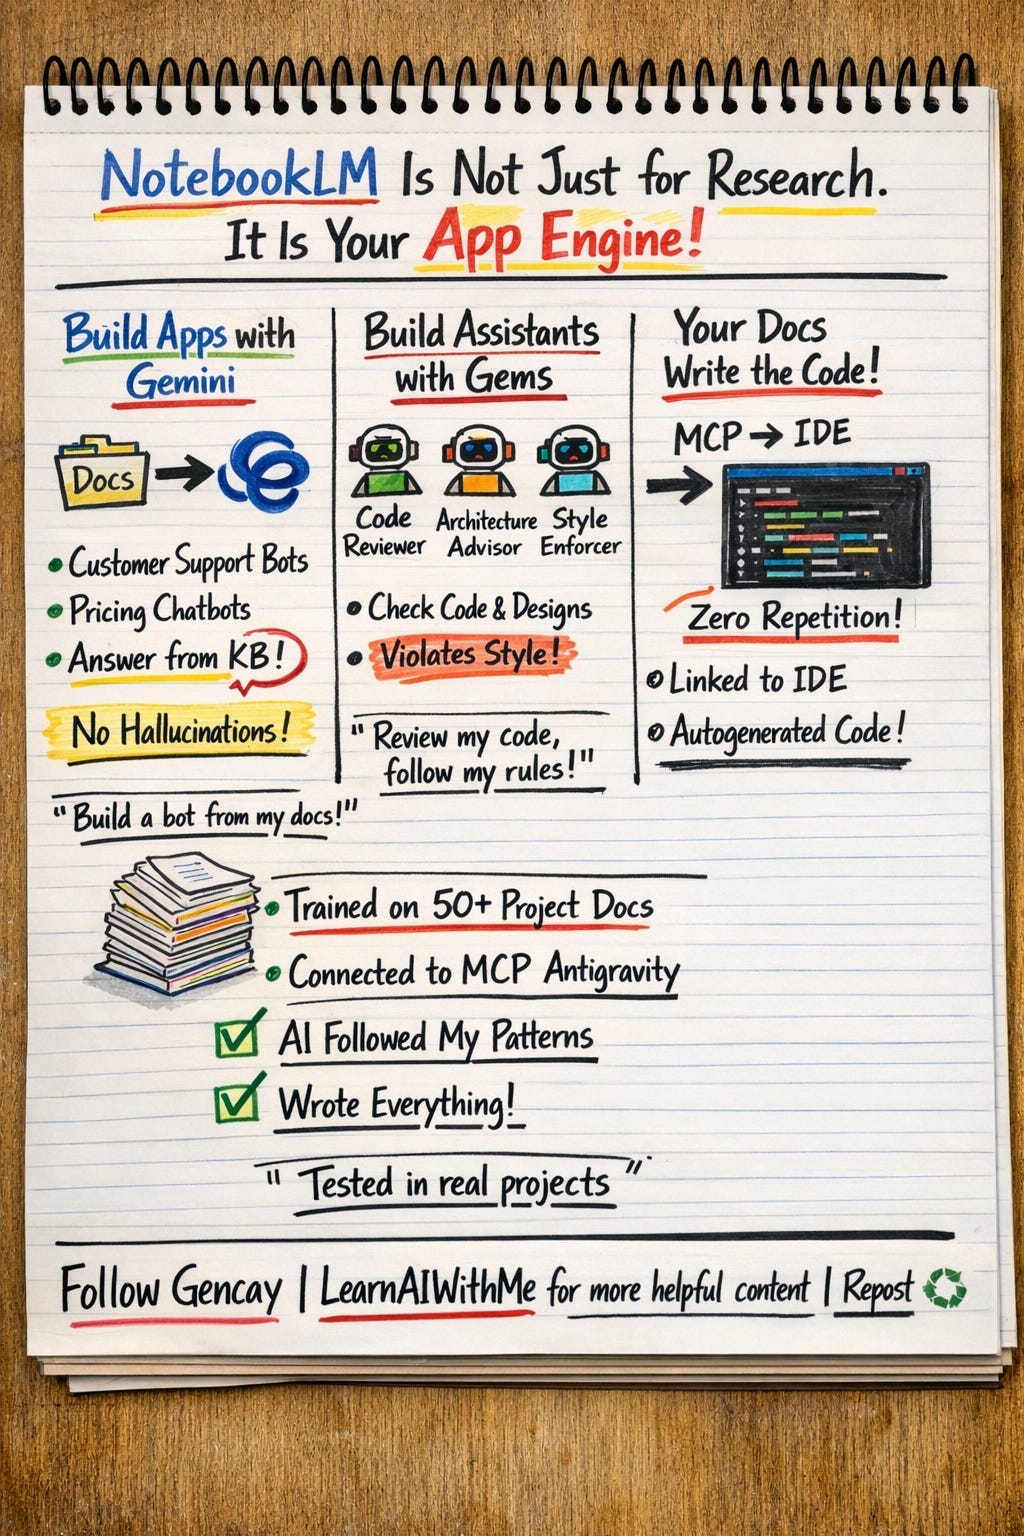 NotebookLM Is Not Just for Research.
It Is Your App Engine!
Build Apps with
Gemini
Docs
• Customer Support Bots
• Pricing Chatbots
• Answer from KB!
No Hallucinations!
"Build a bot from my docs!"
Build Assistants
with Gems
Code
Reviewer
Architecture
Advisor
Style
Enforcer
• Check Code & Designs
• Violates Style!
"Review my code,
follow my rules!"
Your Docs
Write the Code!
MCP → IDE
Zero Repetition!
• Linked to IDE
• Autogenerated Code!
• Trained on 50+ Project Docs
• Connected to MCP Antigravity
AI Followed My Patterns
Wrote Everything!
"Tested in real projects"
Follow Gencay | LearnAIWithMe for more helpful content | Repost